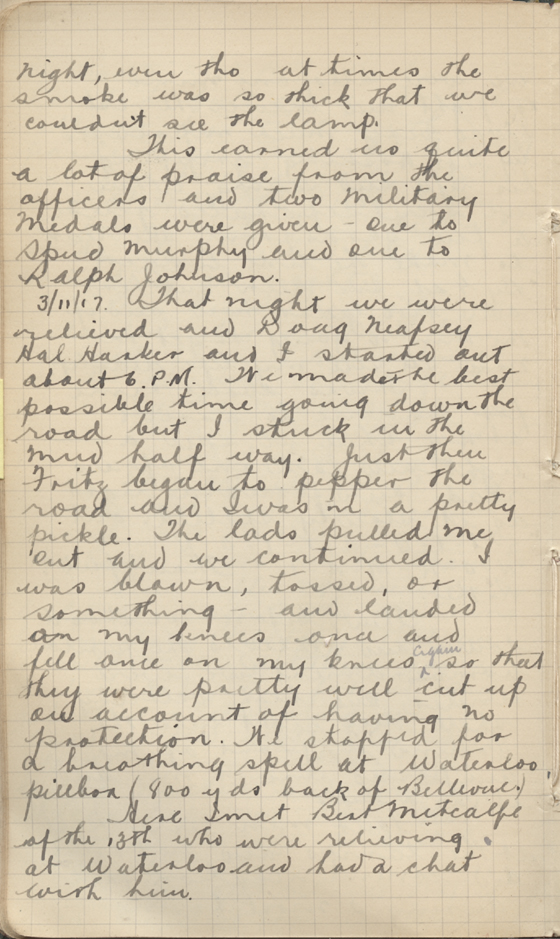 night, even tho at times the
smoke was so thick that we
couldn't see the lamp.
This earned us quite
a lot of praise from the
officers and two Military
Medals were given - one to
Spud Murphy and one to
Ralph Johnson.
3/11/17. That night we were
relieved and Doag Neafsey
Hal Harker and I started out
about 6. P.M. We made the best
possible time going down the
road but I stuck in the
mud half way. Just then
Fritz began to pepper the
road and I was in a pretty
pickle. The lads pulled me
out and we continued. I
was blown, tossed, or
something - and landed
on my knees once and
fell once on my knees again so that
they were pretty well cut up
on account of having no
protection. We stopped for
a breathing spell at Waterloo
pillbox (800 yds back of Bellevue.)
Here I met Bert Metcalfe
of the 13th who were relieving
at Waterloo and had a chat
with him.